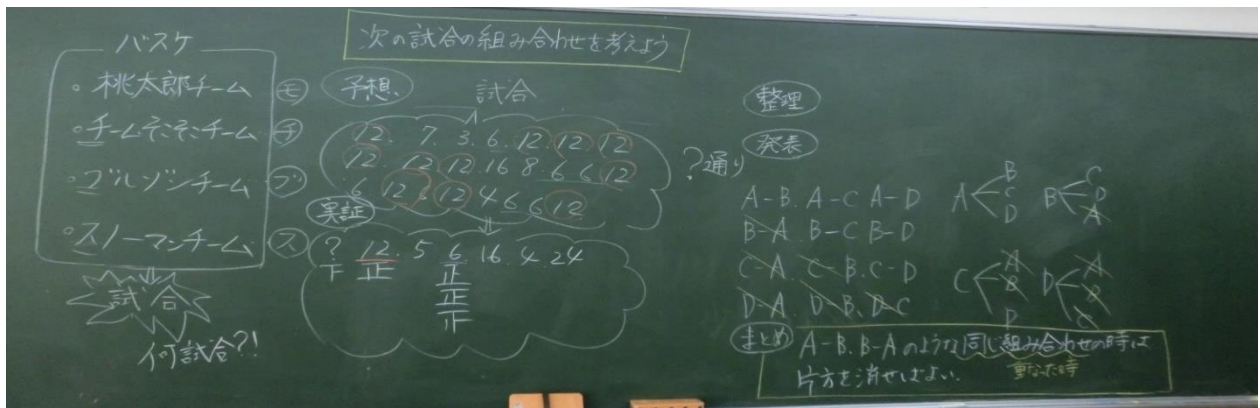 次の試合の組み合わせを考えよう
バスケ
。桃太郎チーム モ
。チームそこそこチーム チ
。ブルゾンチーム ブ
。スノーマンチーム ス
試合
何試合?!
予想
試合
12. 7. 3. 6. 12. 12. 12
12. 12. 12. 16 8. 6 6 12
6 12. 12 4 6 6 12
?通り
実証
? 12. 5 6 16. 4. 24
下 正 正
正
正
下
整理
発表
A-B. A-C A-D
B-A. B-C B-D
C-A. C-B. C-D
D-A. D-B. D-C
A B C D
B C D A
C A B D
D A B C
まとめ
A-B. B-Aのような同じ組み合わせの時は
重なった時
片方を消せばよい.